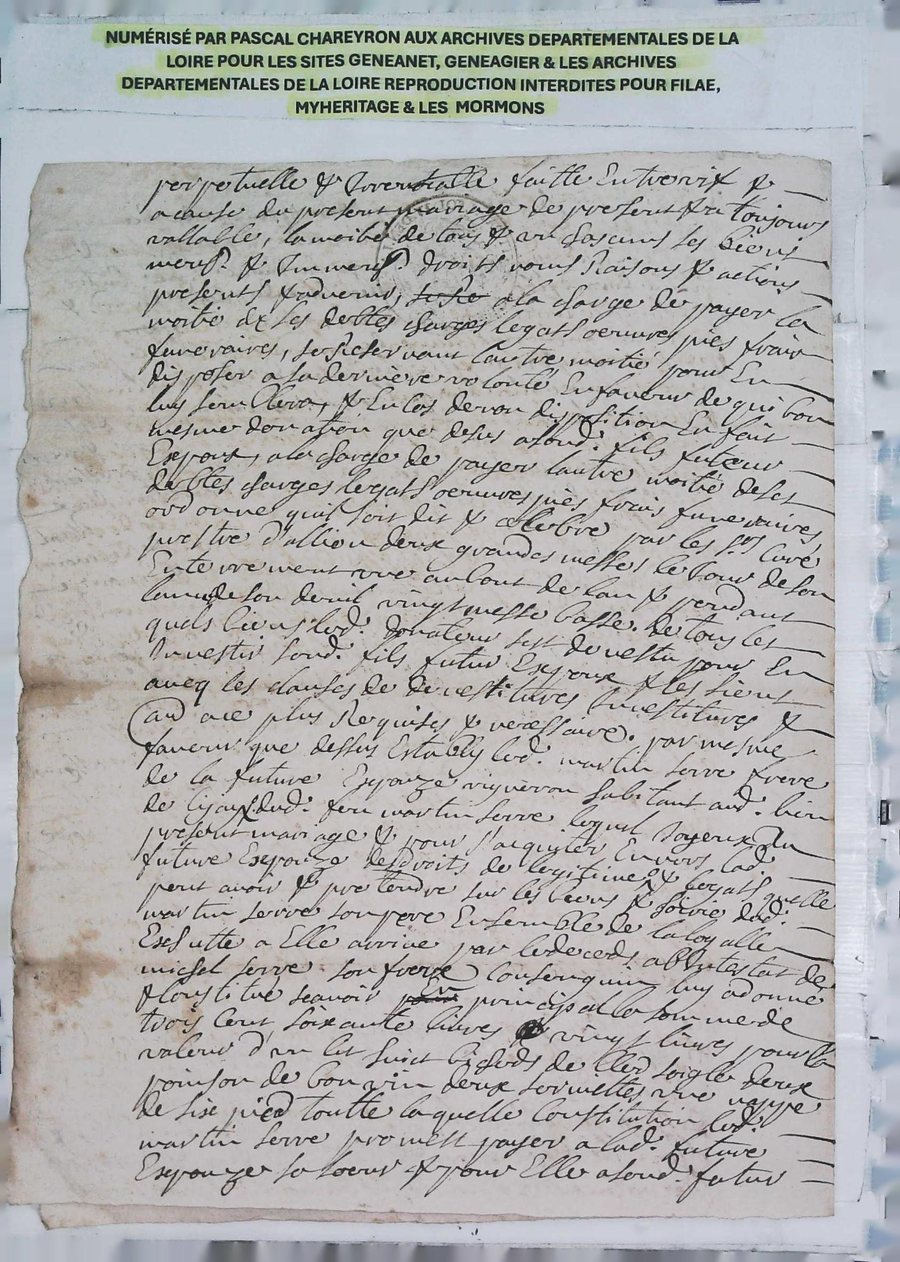 NUMÉRISÉ PAR PASCAL CHAREYRON AUX ARCHIVES DEPARTEMENTALES DE LA
LOIRE POUR LES SITES GENEANET, GENEAGIER & LES ARCHIVES
DEPARTEMENTALES DE LA LOIRE REPRODUCTION INTERDITES POUR FILAE,
MYHERITAGE & LES MORMONS
perpetuelle & Irrevocable faitte Entrevifz &
a cause du present mariage de present & a toujours
vallable, la moitié de tous & un chascuns ses biens
meubs. & Immeubs. droits noms Raisons & actions
presents & advenir, a la charge de payer la
moitié de ses debtes charges legats oeuvres pies frais
funeraires, se Reservant l'autre moitié pour En
disposer a sa derniere volonté En faveur de qui bon
luy semblera, & En cas de non disposition En fait
mesme donation que desus a sond. fils futeur
Expoux, a la charge de payer lautre moitié de ses
debtes charges legats oeuvres pies frais funeraires,
ordonne quil soit dit & cellebré par les srs. Curé
prestre d'allieu deux grandes messes le Jour de son
Enterrement une au bout de lan & pendant
lannée de son deuil vingt messe basse. De tous les
quels biens led. donateur sest devestu pour En
Investir sond. fils futur Expoux & les siens
avecq les clauses de devestitures Investitures &
au plus Requises & necessaire. par mesme
faveur que dessus Estably led. martin serre frere
de la future Expouze vigneron habitant aud. lieu
de dud. feu martin serre lequel Joyeux du
present mariage & pour s'aquiter Envers lad.
future Expouze des droits de legitime & legats quelle
peut avoir & prettendre sur les biens & hoirie dud.
martin serre son pere Ensemble de la loyalle
Escheutte a Elle arrivé par le deceds abintestat de
michel serre son frere luy a donné
& Constitué scavoir En principal la somme de
trois Cent soixante livres vingt livres pour la
valeur d'un lit huict bichets de bled soigle deux
poinson de bon vin deux serviettes une nappe
de six pied toutte laquelle Constitution led.
martin serre promest payer a lad. future
Expouze sa soeur & pour Elle a sond. futur